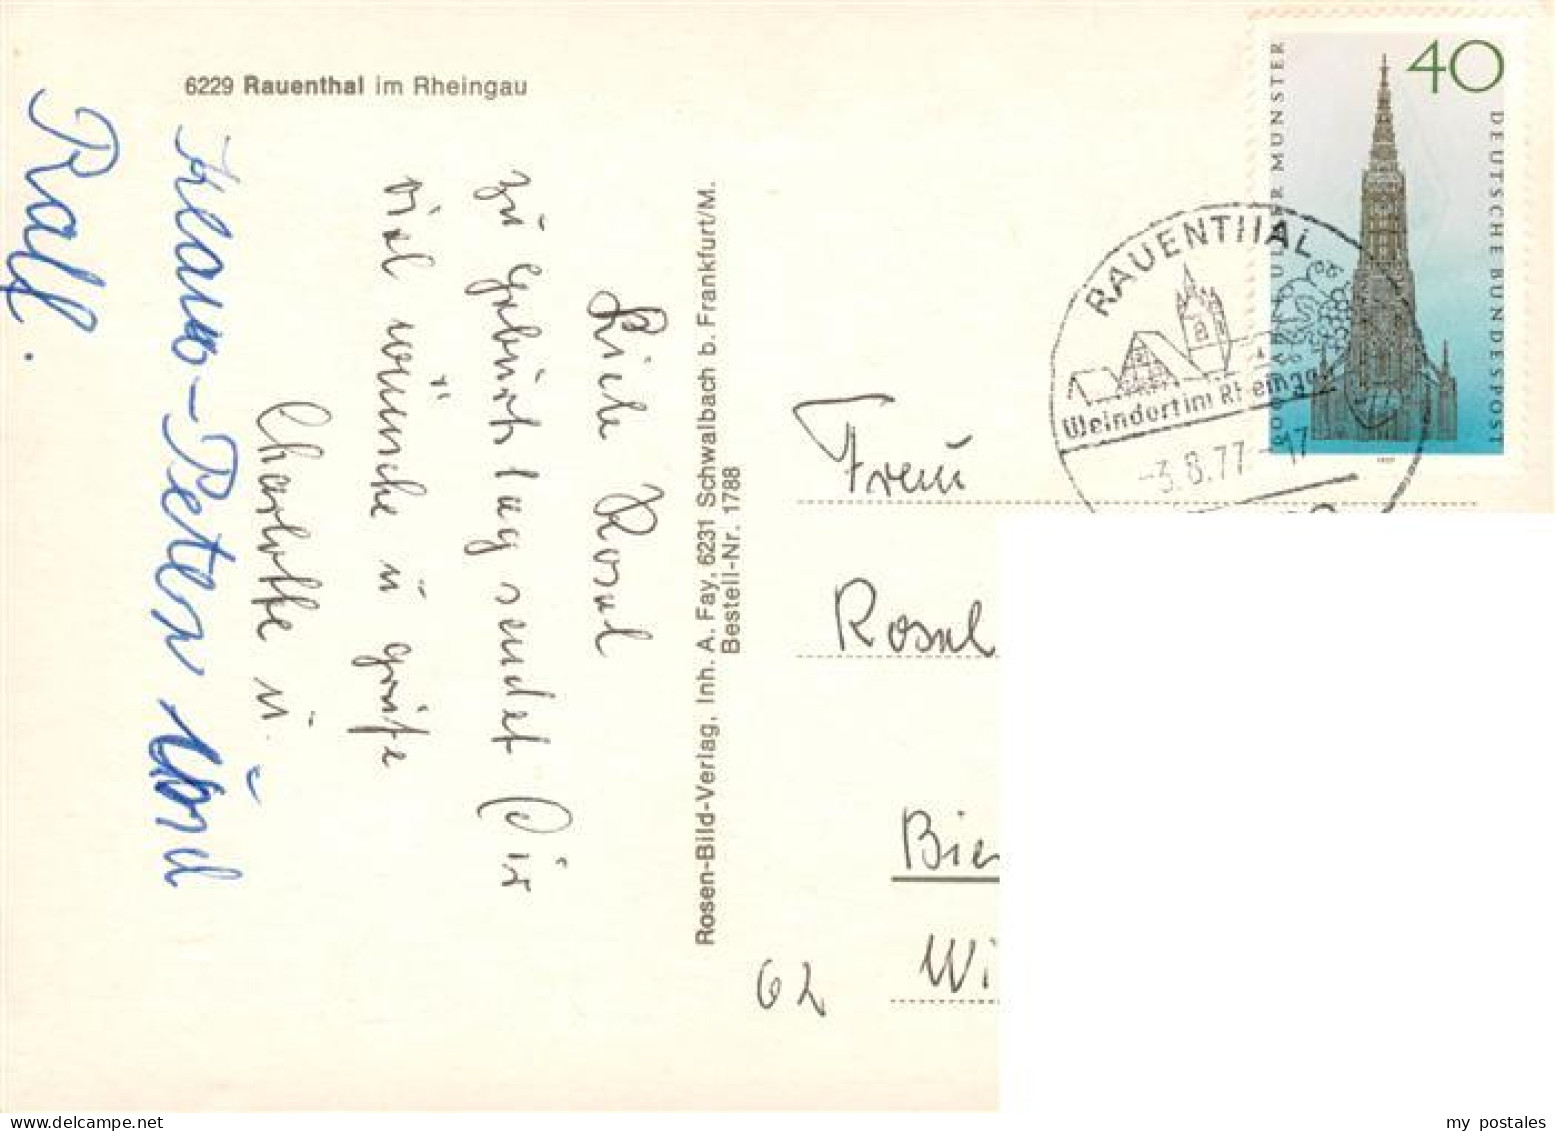 6229 Rauenthal im Rheingau
Liebe Rosel
zu Geburtstag sendet Dir
viel wünsche u grüße
Charlotte u.
Klaus-Peter und
Ralf.
Rosen-Bild-Verlag, Inh. A. Fay, 6231 Schwalbach b. Frankfurt/M.
Bestell-Nr. 1788
40
DEUTSCHE BUNDESPOST
ULMER MÜNSTER
RAUENTHAL
Weindort im Rheingau
-3.8.77-17
Frau
Rosel
Bie
Wi
62
my postales